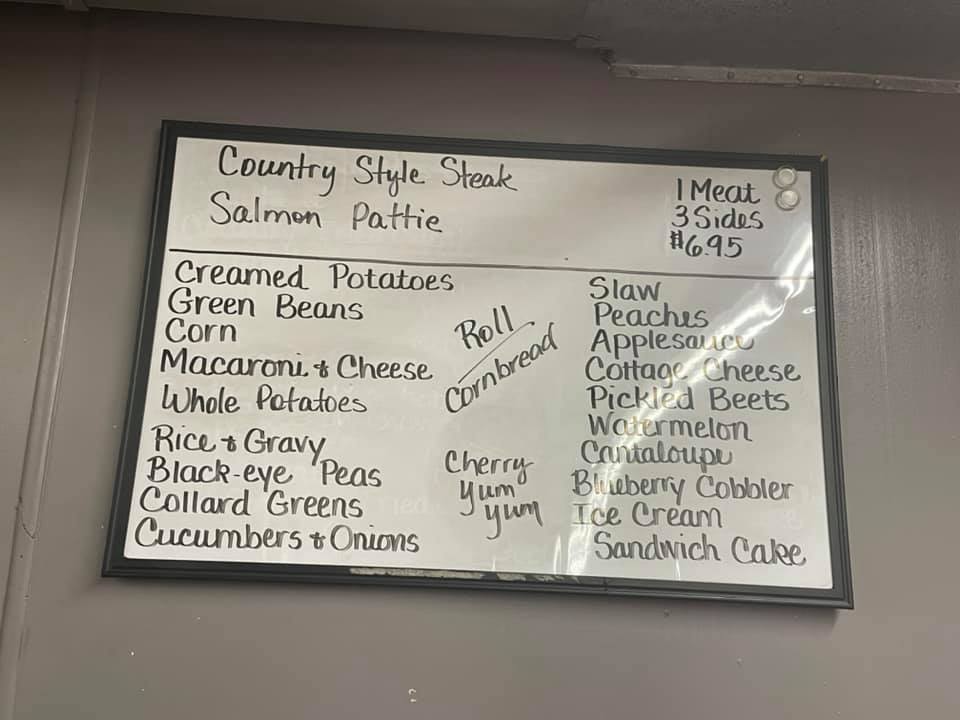 Country Style Steak
Salmon Pattie
1 Meat
3 Sides
$6.95
Creamed Potatoes
Green Beans
Corn
Macaroni & Cheese
Whole Potatoes
Rice & Gravy
Black-eye Peas
Collard Greens
Cucumbers & Onions
Roll
Cornbread
Cherry
Yum
yum
Slaw
Peaches
Applesauce
Cottage Cheese
Pickled Beets
Watermelon
Cantaloupe
Blueberry Cobbler
Ice Cream
Sandwich Cake